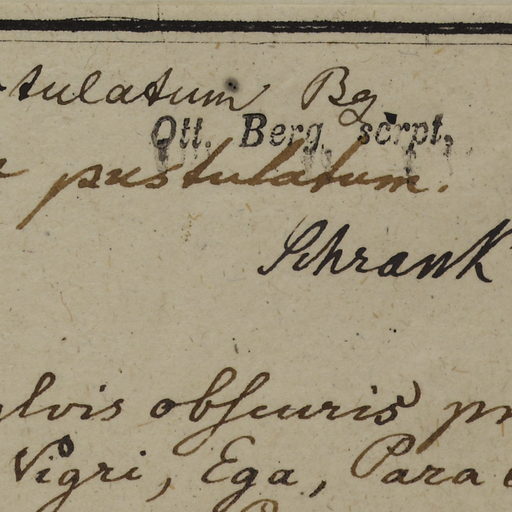 tulatum Bg
Ott. Berg scrpt.
pustulatum.
Schrank
ylvis obscuris pr
Nigri, Ega, Para